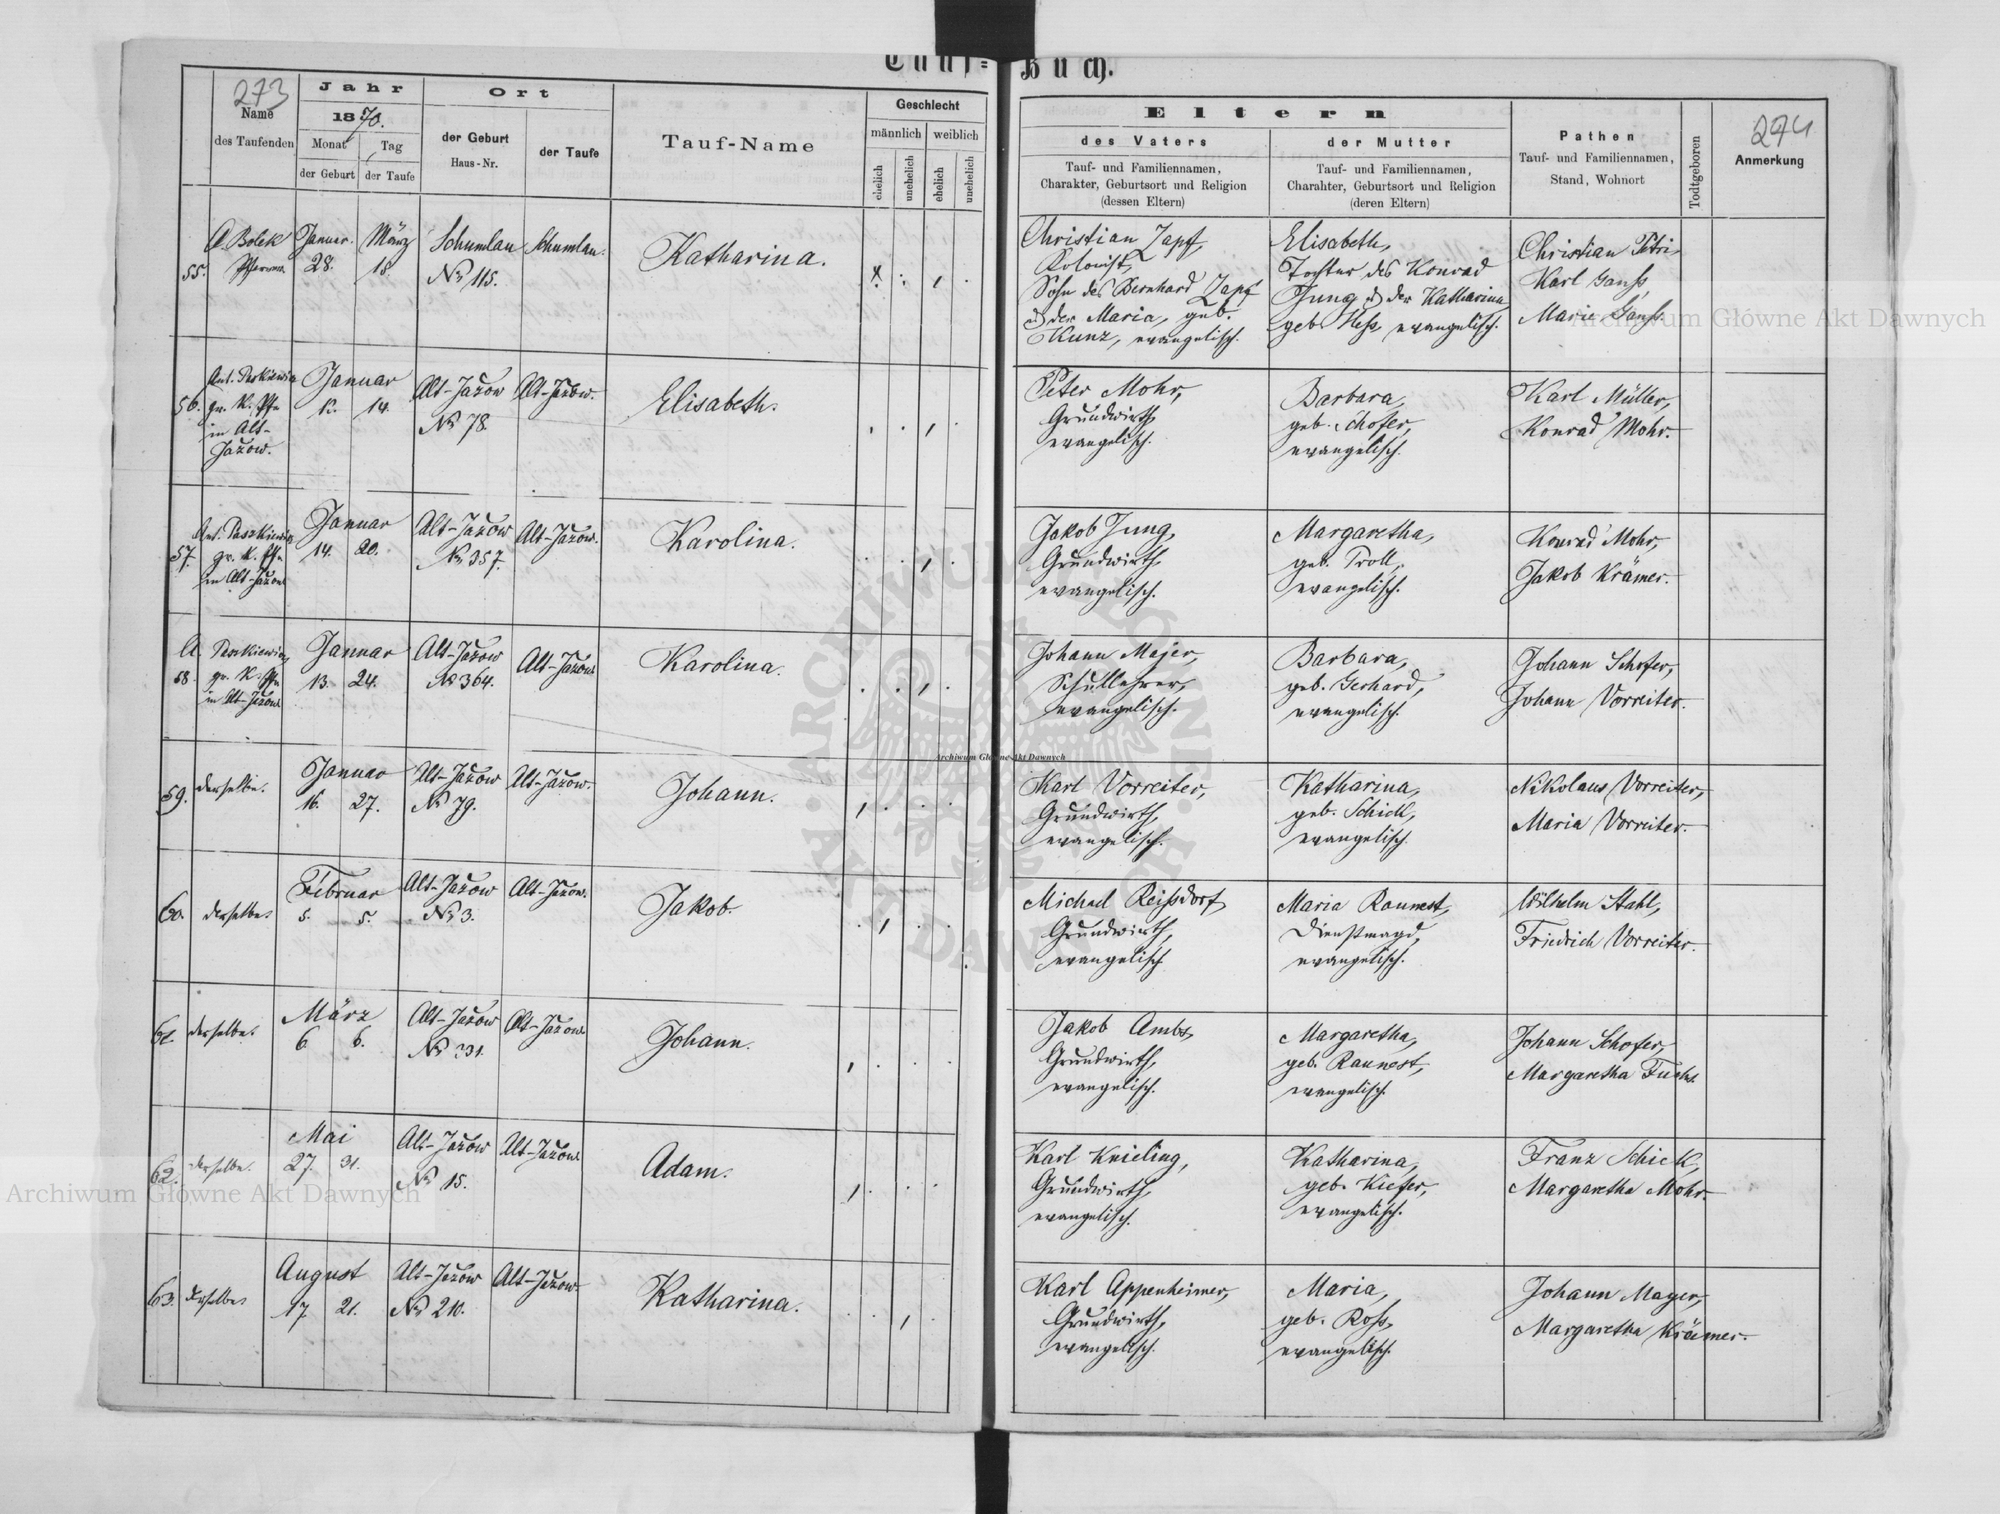 Tauf=
Buch.
273
Name
des Taufenden
Jahr
1870.
Monat
Tag
der Geburt
der Taufe
Ort
der Geburt
Haus-Nr.
der Taufe
Tauf-Name
Geschlecht
männlich
weiblich
ehelich
unehelich
ehelich
unehelich
Eltern
des Vaters
Tauf- und Familiennamen,
Charakter, Geburtsort und Religion
(dessen Eltern)
der Mutter
Tauf- und Familiennamen,
Charahter, Geburtsort und Religion
(deren Eltern)
Pathen
Tauf- und Familiennamen,
Stand, Wohnort
Todtgeboren
274
Anmerkung
55.
A Bolek
Januar.
28.
März
18.
Schumlau
No 115.
Schumlau.
Katharina.
Christian Zapf,
Kolonist,
Sohn des Bernhard Zapf
u der Maria, geb.
Kunz, evangelisch.
Elisabeth,
Tochter des Konrad
Jung u der Katharina
geb. Heß, evangelisch.
Christian Petri,
Karl Ganß,
Marie Ganß.
56.
gr. K. Pfr
in Alt-
Jazow.
Januar
14.
Alt-Jazow
No 78.
Alt-Jazow.
Elisabeth.
Peter Mohr,
Grundwirth,
evangelisch.
Barbara,
geb. Schofer,
evangelisch.
Karl Müller,
Konrad Mohr.
57.
Ant. Paszkiewicz
gr. K. Pfr
in Alt-Jazow
Januar
14. 20.
Alt-Jazow
No 357.
Alt-Jazow.
Karolina.
Jakob Jung,
Grundwirth,
evangelisch.
Margaretha,
geb. Troll,
evangelisch.
Konrad Mohr,
Jakob Krämer.
58.
A.
gr. K. Pfr
in Alt-Jazow
Januar
13. 24.
Alt-Jazow
No 364.
Alt-Jazow
Karolina.
Johann Majer,
Schullehrer,
evangelisch.
Barbara,
geb. Gerhard,
evangelisch.
Johann Schofer,
Johann Vorreiter.
59.
derselbe.
Januar
16. 27.
Alt-Jazow
No 79.
Alt-Jazow.
Johann.
Karl Vorreiter,
Grundwirth,
evangelisch.
Katharina,
geb. Schick,
evangelisch.
Nikolaus Vorreiter,
Maria Vorreiter.
60.
derselbe.
Februar
5. 5.
Alt-Jazow
No 3.
Alt-Jazow.
Jakob.
Michael Reißdorf,
Grundwirth,
evangelisch
Maria Raunest,
Dienstmagd,
evangelisch.
Wilhelm Stahl,
Friedrich Vorreiter.
61.
derselbe.
März
6 6.
Alt-Jazow
No 331.
Alt-Jazow
Johann.
Jakob Ambs,
Grundwirth,
evangelisch.
Margaretha,
geb. Raunest,
evangelisch.
Johann Schofer,
Margaretha Fuchs.
62.
derselbe.
Mai
27. 31.
Alt-Jazow
No 15.
Alt-Jazow
Adam.
Karl Knieling,
Grundwirth,
evangelisch.
Katharina,
geb. Kiefer,
evangelisch.
Franz Schick,
Margaretha Mohr.
63.
derselbe.
August
17. 21.
Alt-Jazow
No 210.
Alt-Jazow.
Katharina.
Karl Appenheimer,
Grundwirth,
evangelisch.
Maria,
geb. Roß,
evangelisch.
Johann Mayer,
Margaretha Krämer.
Archiwum Główne Akt Dawnych
Archiwum Główne Akt Dawnych
Archiwum Główne Akt Dawnych
ARCHIWUM GŁÓWNE AKT DAWNYCH